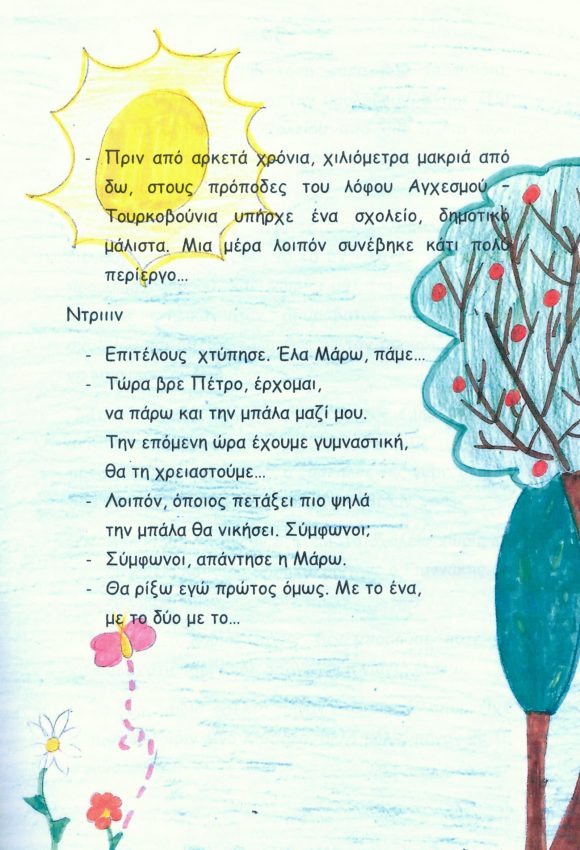 - Πριν από αρκετά χρόνια, χιλιόμετρα μακριά από
δω, στους πρόποδες του λόφου Αγχεσμού –
Τουρκοβούνια υπήρχε ένα σχολείο, δημοτικό
μάλιστα. Μια μέρα λοιπόν συνέβηκε κάτι πολύ
περίεργο…
Ντριιιν
- Επιτέλους χτύπησε. Έλα Μάρω, πάμε…
- Τώρα βρε Πέτρο, έρχομαι,
να πάρω και την μπάλα μαζί μου.
Την επόμενη ώρα έχουμε γυμναστική,
θα τη χρειαστούμε…
- Λοιπόν, όποιος πετάξει πιο ψηλά
την μπάλα θα νικήσει. Σύμφωνοι;
- Σύμφωνοι, απάντησε η Μάρω.
- Θα ρίξω εγώ πρώτος όμως. Με το ένα,
με το δύο με το…